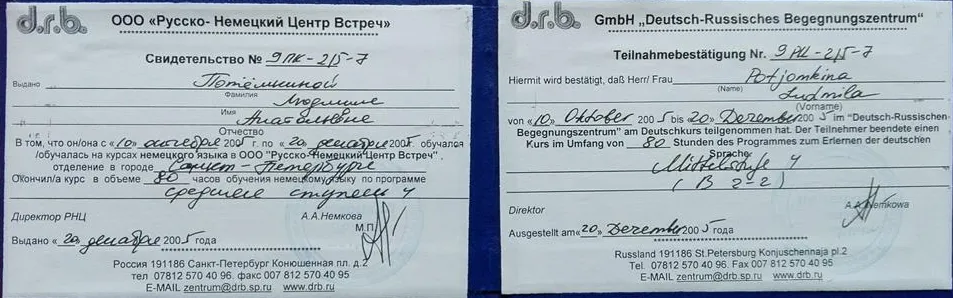 d.r.b.
ООО «Русско- Немецкий Центр Встреч»
Свидетельство № 9 ПК-2/5-7
Выдано Потёмкиной
Фамилия
Людмиле
Имя
Анатольевне
Отчество
В том, что он/она с «10» октября 2005 г. по «20» декабря 2005 обучался
/обучалась на курсах немецкого языка в ООО "Русско-Немецкий Центр Встреч",
отделение в городе Санкт-Петербурге
Окончил/а курс в объеме 80 часов обучения немецкому языку по программе
средней ступени 4
Директор РНЦ
А.А.Немкова
М.П.
Выдано «20» декабря 2005 года
Россия 191186 Санкт-Петербург Конюшенная пл. д.2
тел 07812 570 40 96. факс 007 812 570 40 95
E-MAIL zentrum@drb.sp.ru www.drb.ru
d.r.b.
GmbH „Deutsch-Russisches Begegnungszentrum"
Teilnahmebestätigung Nr. 9 PK-2/5-7
Hiermit wird bestätigt, daß Herr/ Frau Potjomkina
(Name)
Ludmila
(Vorname)
von «10» Oktober 2005 bis «20» Dezember 2005 im "Deutsch-Russischen
Begegnungszentrum" am Deutschkurs teilgenommen hat. Der Teilnehmer beendete einen
Kurs im Umfang von 80 Stunden des Programmes zum Erlernen der deutschen
Sprache
Mittelstufe 4
(B 2-2)
Direktor
A.A.Nemkowa
Ausgestellt am «20» Dezember 2005
Russland 191186 St.Petersburg Konjuschennaja pl.2
Tel. 07812 570 40 96. Fax 007 812 570 40 95
E-MAIL zentrum@drb.ru www.drb.ru